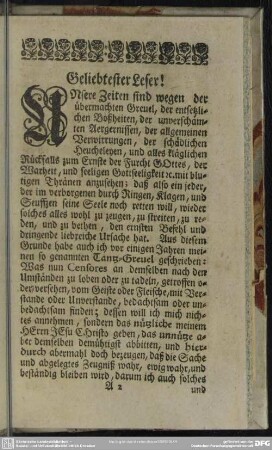 Geliebtester Leser!
UNsere Zeiten sind wegen der
übermachten Greuel, der entsetzli-
chen Boßheiten, der unverschäm-
ten Aergernissen, der allgemeinen
Verwirrungen, der schädlichen
Heucheleyen, und alles kläglichen
Rückfalls zum Ernste der Furcht GOttes, der
Warheit, und seeligen Gottseeligkeit ꝛc. mit blu-
tigen Thränen anzusehen; daß also ein jeder,
der im verborgenen durch Ringen, Klagen, und
Seuffzen seine Seele noch retten will, wieder
solches alles wohl zu zeugen, zu streiten, zu re-
den, und zu bethen, den ernsten Befehl und
dringende liebreiche Ursache hat. Aus diesem
Grunde habe auch ich vor einigen Jahren mei-
nen so genannten Tantz-Greuel geschrieben:
Was nun Censores an demselben nach den
Umständen zu loben oder zu tadeln, getroffen o-
der versehen, vom Geiste oder Fleische, mit Ver-
stande oder Unverstande, bedachtsam oder un-
bedachtsam finden; dessen will ich mich nich-
tes annehmen, sondern das nützliche meinem
HErrn JEsu Christo geben, das unnütze a-
ber demselben demüthigst abbitten, und hier-
durch abermahl doch bezeugen, daß die Sache
und abgelegtes Zeugniß wahr, ewig wahr, und
beständig bleiben wird, darum ich auch solches
A 2 und